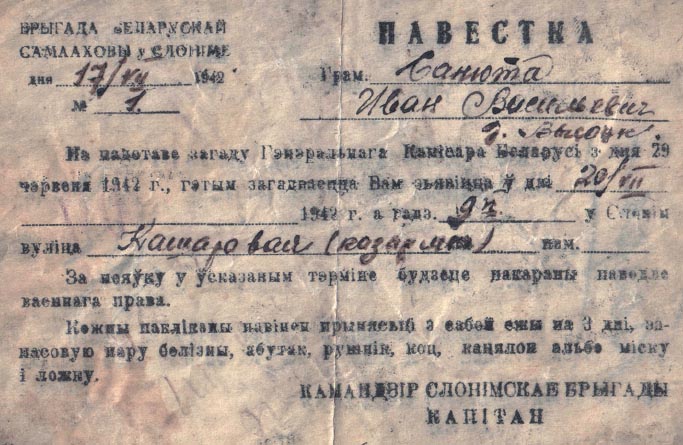 БРЫГАДА БЕЛАРУСКАЙ
САМААХОВЫ у СЛОНІМЕ
дня 17/VII 1942
№ 1.
ПАВЕСТКА
Грам. Санюта
Иван Васильевич
д. Высоцк.
На падставе загаду Генэральнага Камісара Беларусі з дня 29
чэрвеня 1942 г., гэтым загадваецца Вам зьявіцца ў дні 20/VII
1942 г. а гадз. 9 ч. у Слонім
вуліца Кашаровая (казармы) нам.
За няяўку у ўсказаным тэрміне будзеце накараны паводле
ваеннага права.
Кожны пакліканы павінен прынясьці з сабой ежы на 3 дні, за-
пасовую пару бялізны, абутак, ручнік, коц, кацялок альбо міску
і ложку.
КАМАНДЗІР СЛОНІМСКАЕ БРЫГАДЫ
КАПІТАН